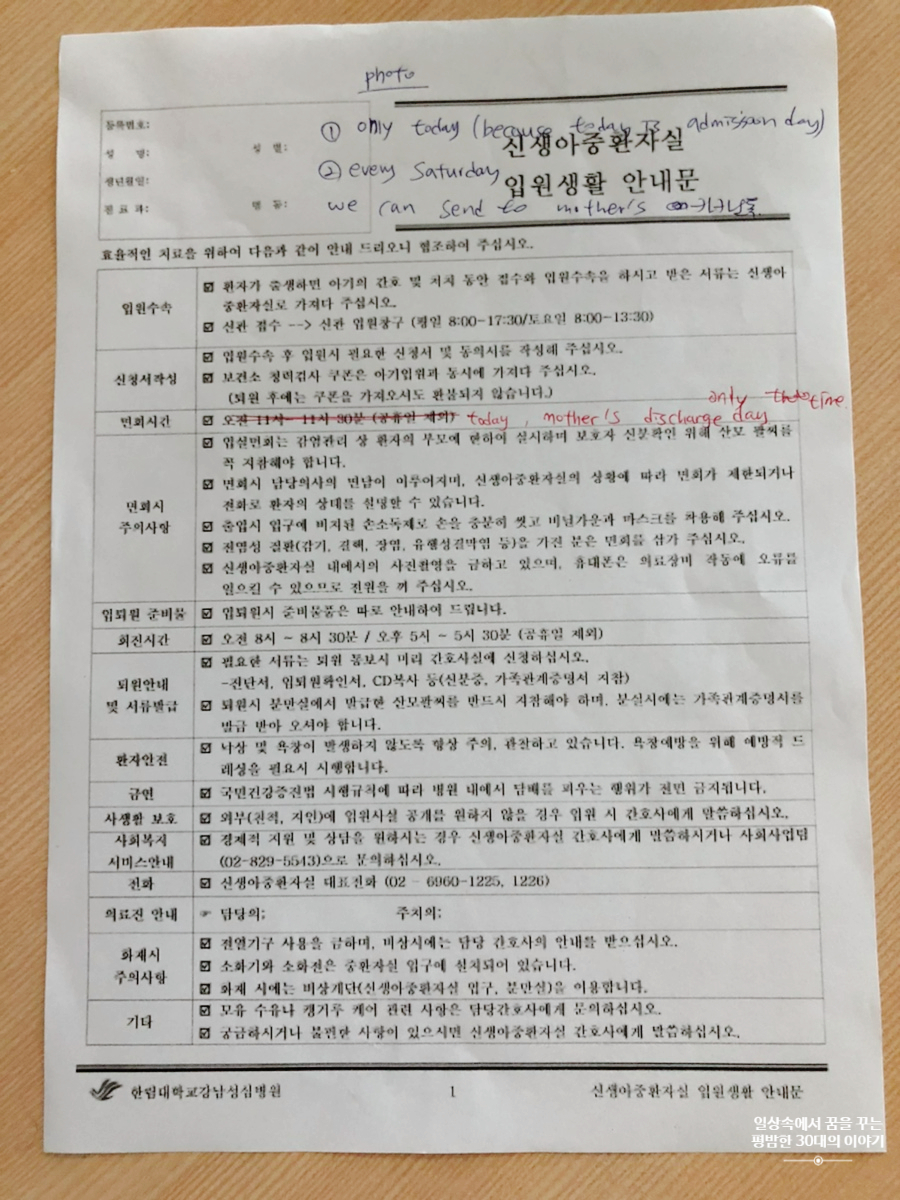 photo
등록번호:
성 명: 성 별:
생년월일:
진 료 과: 병 동:
① only today (because today is admission day)
신생아중환자실
② every Saturday
입원생활 안내문
we can send to mother's 카카오톡
효율적인 치료를 위하여 다음과 같이 안내 드리오니 협조하여 주십시오.
입원수속
☑ 환자가 출생하면 아기의 간호 및 처치 동안 접수와 입원수속을 하시고 받은 서류는 신생아
중환자실로 가져다 주십시오.
☑ 신관 접수 --> 신관 입원창구 (평일 8:00-17:30/토요일 8:00-13:30)
신청서작성
☑ 입원수속 후 입원시 필요한 신청서 및 동의서를 작성해 주십시오.
☑ 보건소 청력검사 쿠폰은 아기입원과 동시에 가져다 주십시오.
(퇴원 후에는 쿠폰을 가져오셔도 환불되지 않습니다.)
면회시간
☑ 오전 11시- 11시 30분 (공휴일 제외) today, mother's discharge day
only time.
면회시
주의사항
☑ 입실면회는 감염관리 상 환자의 부모에 한하여 실시하며 보호자 신분확인 위해 산모 팔찌를
꼭 지참해야 합니다.
☑ 면회시 담당의사의 면담이 이루어지며, 신생아중환자실의 상황에 따라 면회가 제한되거나
전화로 환자의 상태를 설명할 수 있습니다.
☑ 출입시 입구에 비치된 손소독제로 손을 충분히 씻고 비닐가운과 마스크를 착용해 주십시오.
☑ 전염성 질환(감기, 결핵, 장염, 유행성결막염 등)을 가진 분은 면회를 삼가 주십시오.
☑ 신생아중환자실 내에서의 사진촬영을 금하고 있으며, 휴대폰은 의료장비 작동에 오류를
일으킬 수 있으므로 전원을 꺼 주십시오.
입퇴원 준비물
☑ 입퇴원시 준비물품은 따로 안내하여 드립니다.
회진시간
☑ 오전 8시 ~ 8시 30분 / 오후 5시 ~ 5시 30분 (공휴일 제외)
퇴원안내
및 서류발급
☑ 필요한 서류는 퇴원 통보시 미리 간호사실에 신청하십시오.
-진단서, 입퇴원확인서, CD복사 등(신분증, 가족관계증명서 지참)
☑ 퇴원시 분만실에서 발급한 산모팔찌를 반드시 지참해야 하며, 분실시에는 가족관계증명서를
발급 받아 오셔야 합니다.
환자안전
☑ 낙상 및 욕창이 발생하지 않도록 항상 주의, 관찰하고 있습니다. 욕창예방을 위해 예방적 드
레싱을 필요시 시행합니다.
금연
☑ 국민건강증진법 시행규칙에 따라 병원 내에서 담배를 피우는 행위가 전면 금지됩니다.
사생활 보호
☑ 외부(친척, 지인)에 입원사실 공개를 원하지 않을 경우 입원 시 간호사에게 말씀하십시오.
사회복지
서비스안내
☑ 경제적 지원 및 상담을 원하시는 경우 신생아중환자실 간호사에게 말씀하시거나 사회사업팀
(02-829-5543)으로 문의하십시오.
전화
☑ 신생아중환자실 대표전화 (02 - 6960-1225, 1226)
의료진 안내
☞ 담당의; 주치의;
화재시
주의사항
☑ 전열기구 사용을 금하며, 비상시에는 담당 간호사의 안내를 받으십시오.
☑ 소화기와 소화전은 중환자실 입구에 설치되어 있습니다.
☑ 화재 시에는 비상계단(신생아중환자실 입구, 분만실)을 이용합니다.
기타
☑ 모유 수유나 캥거루 케어 관련 사항은 담당간호사에게 문의하십시오.
☑ 궁금하시거나 불편한 사항이 있으시면 신생아중환자실 간호사에게 말씀하십시오.
한림대학교강남성심병원 1 신생아중환자실 입원생활 안내문
일상속에서 꿈을 꾸는
평범한 30대의 이야기